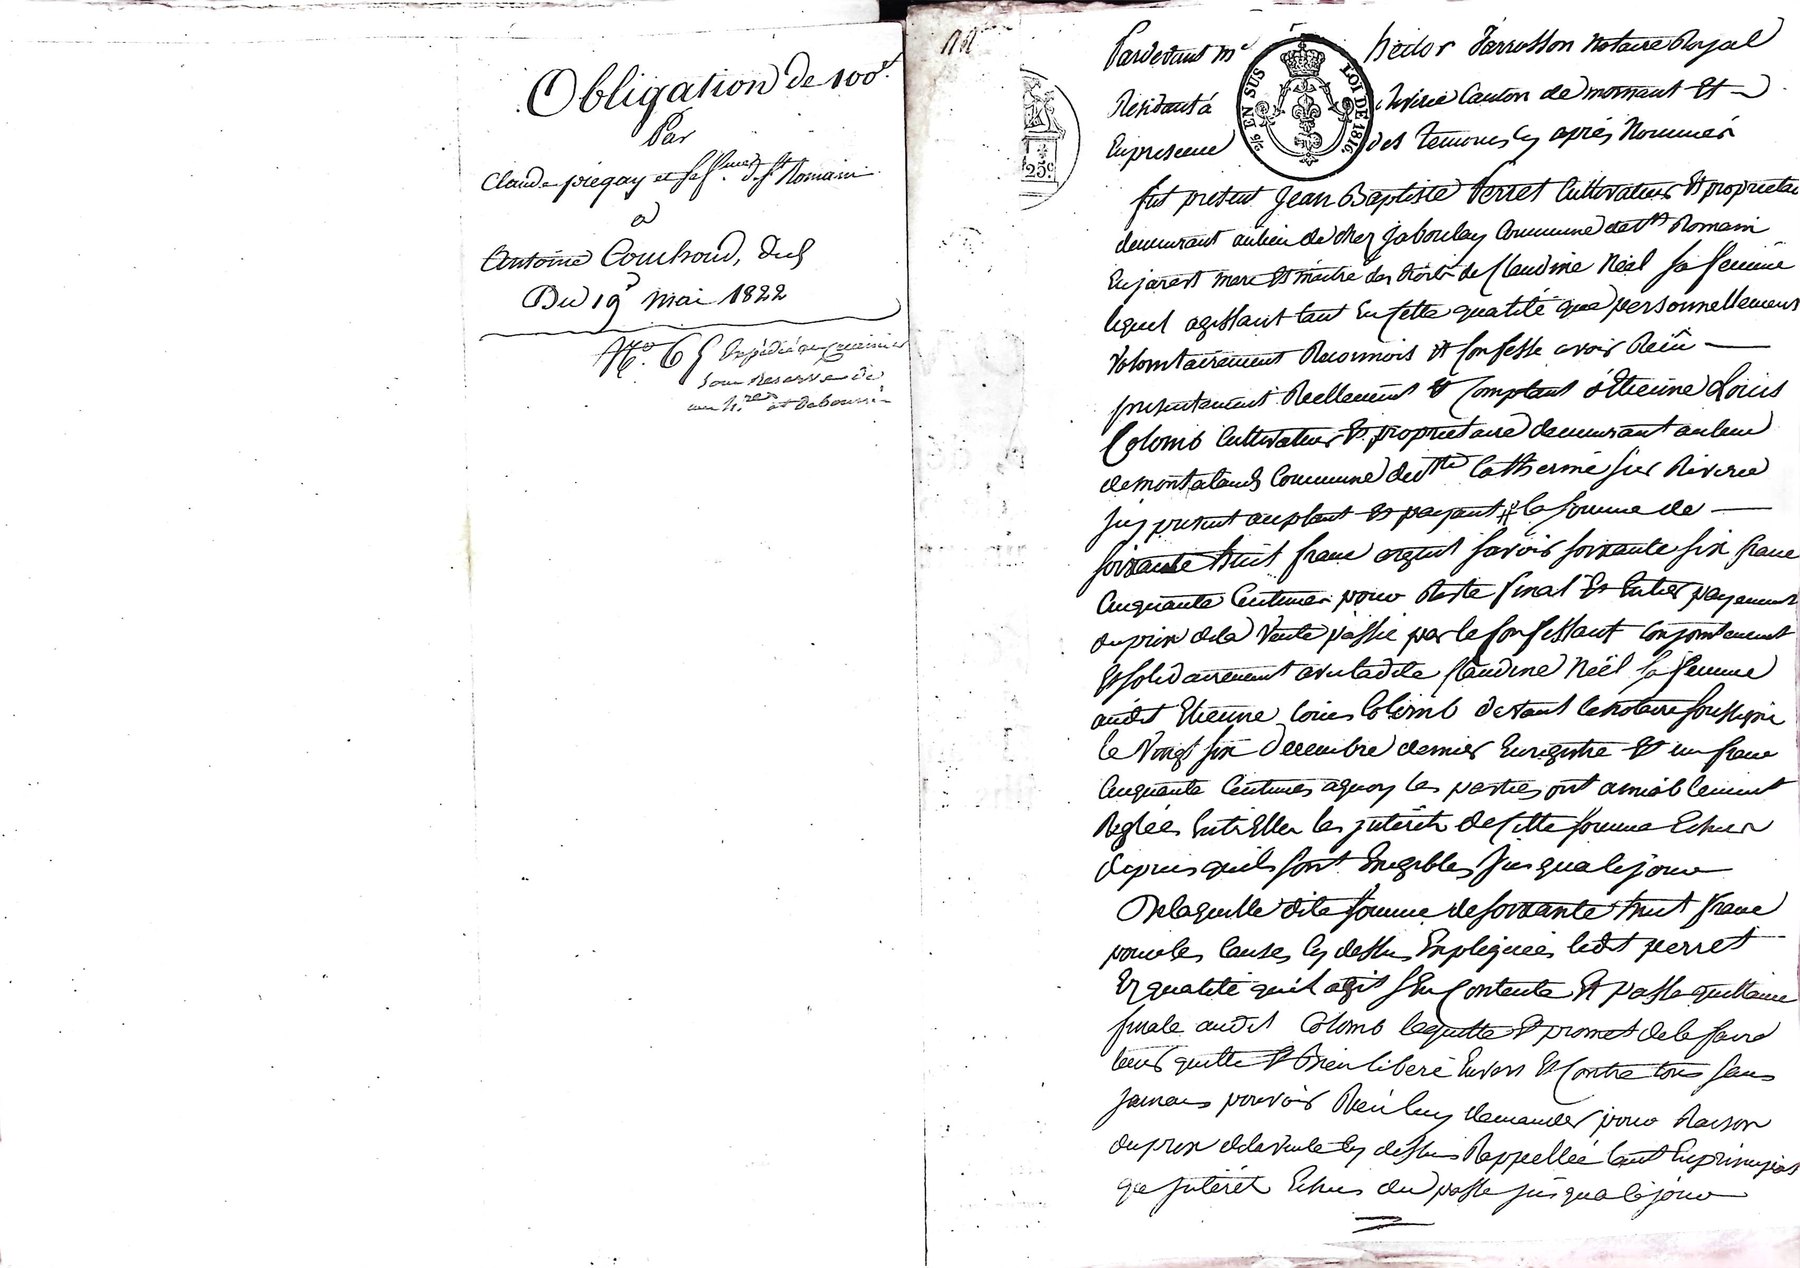 Obligation de 100f.
Par
Claude piégay et sa f.me de St Romain
a
Antoine Couchoud, dud.
Du 19 mai 1822
N.o 65 Expédié au Créancier
sous Reserve de
mes h.res et deboursés
Pardevant Me hector Farrosson Notaire Royal
Residant à Riverie Canton de mornant Et
En presence des temoins Cy après Nommés
fut present Jean Baptiste Perret Cultivateur Et proprietaire
demeurant au lieu de chez Jaboulay Commune de St Romain
En jarest mari Et maitre des droits de Claudine Néel sa femme
lequel agissant tant En Cette qualité que personnellement
Volontairement Reconnois Et Confesse avoir Reçû
presentement Reellement Et Comptant d'Etienne Louis
Colomb Cultivateur Et proprietaire demeurant au lieu
de montaland Commune de Ste Catherine sur Riverie
Icy present acceptant Et payant la somme de
soixante huit francs argent savoir soixante six francs
Cinquante Centimes pour Reste final Et Entier payement
du prix de la Vente passée par le Confessant Conjointement
Et solidairement avec ladite Claudine Néel sa femme
audit Etienne Louis Colomb devant le Notaire soussigné
le Vingt six Decembre dernier Enregistré Et un franc
Cinquante Centimes a quoy les parties ont amiablement
Reglées Entr'Elles les jntérêts de Cette somme Echus
depuis quils sont Exigibles jusqua Ce jour
De laquelle dite somme de soixante huit francs
pour les Causes Cy dessus Expliquées ledit perret
En qualité quil agit s'En Contente Et passe quittance
finale audit Colomb Len quitte Et promet de le faire
tenir quitte Et Bien libéré Envers Et Contre tous sans
jamais pouvoir Rien luy demander pour Raison
du prix de la Vente Cy dessus Rappellée tant En principal
que jntérêts Echus du passé jusqua Ce jour
5/6 EN SUS
LOI DE 1816
25c